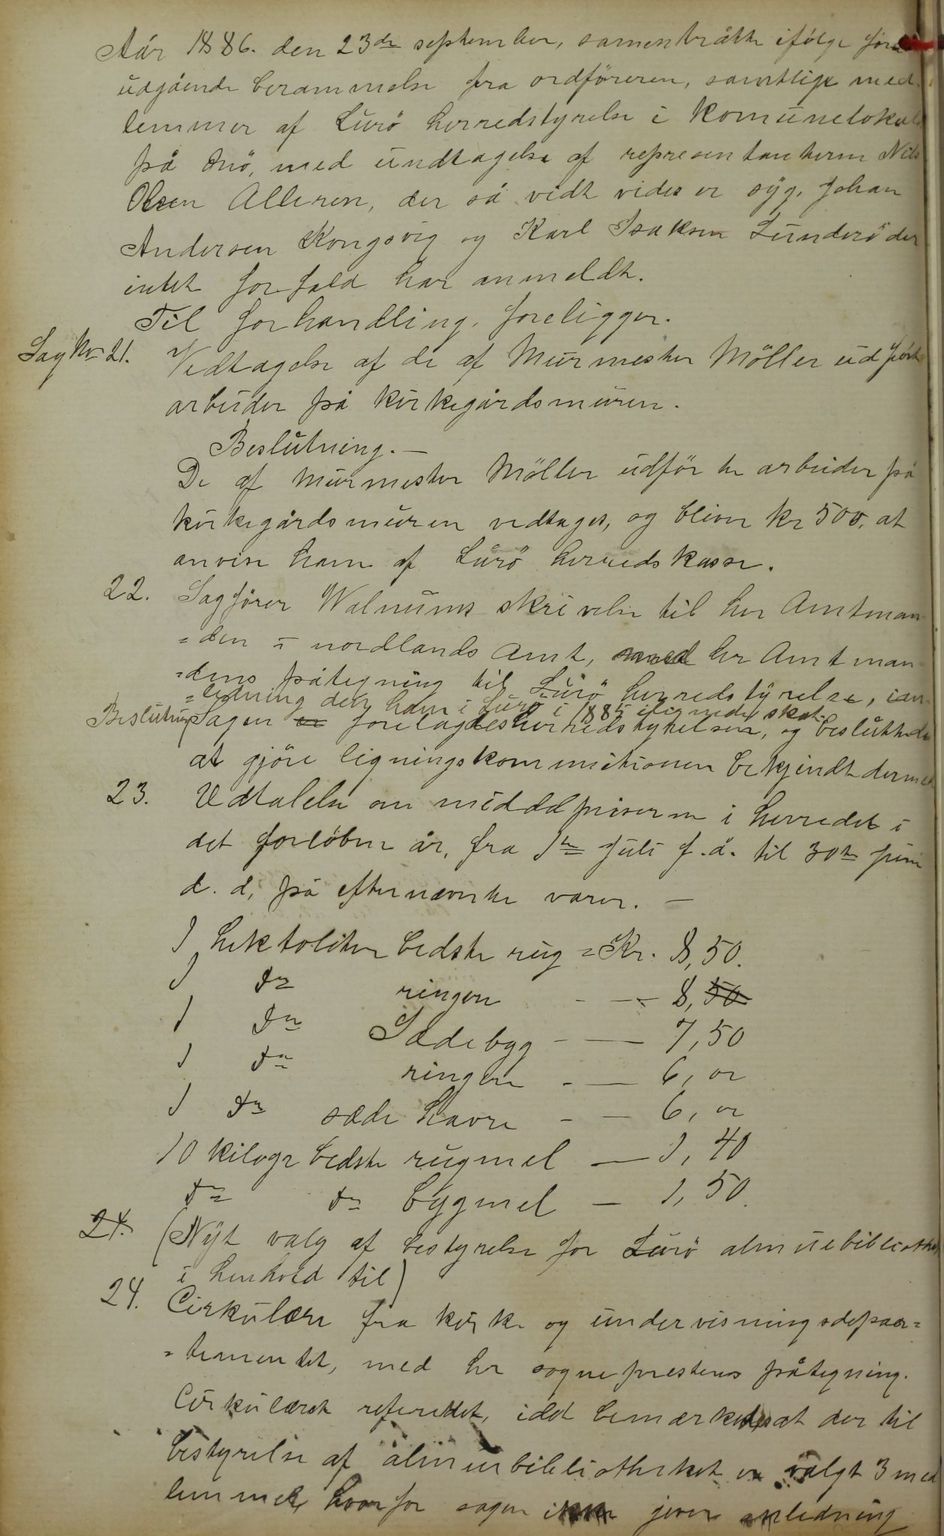 Aår 1886. den 23de september, samentråtte ifölge fore
udgående berammelse fra ordföreren, samtlige med
lemmer af Lurö herredstyrelse i Komunelokal
på Onö, med undtagelse af representanterne Nils
Olsen Alleren, der så vidt vides er syg. Johan
Andersen Kongsvig og Karl Isaksen Lunderö der
intet forfald har anmeldt.
Til forhandling foreligger.
Sag No 21. Vedtagelse af de af Murmester Möller udförte
arbeider på kirkegårdsmuren.
Beslutning. —
De af Murmester Möller udför te arbeider på
kirkegårdsmuren vedtages, og bliver kr 500, at
anvise ham af Lurö herredskasse.
22. Sagförer Walnums skrivelse til her Amtman
=den i nordlands Amt, med hr Amtman
=dens påtegning til Lurö herredstyrelse, i an
=ledning den ham i Lurö i 1885 ilignede skat.
Beslutning (Sagen forelagdes herredstyrelsen, og besluttede
at gjöre ligningskommissionen bekjendt dermed
23. Udtalelse om middelpriserne i herredet i
det forlöbne år, fra 1ste Juli f.å. til 30te juni
d. å, på efternævnte varer. —
1 hektoliter bedste rug = Kr. 8,50.
1 do ringere - — 8,50
1 do Sædebyg - — 7,50
1 do ringere - — 6, 00
1 do sæde havre - — 6, 00
10 kilogr bedste rugmel — 1, 40
do do bygmel — 1, 50.
24. (Nyt valg af bestyrelse for Lurö almuebibliothek
i henhold til)
24. Cirkulære fra kirke og undervisningsdepar=
=tementet, med hr sogneprestens påtegning.
Cirkulæret referedet, idet bemærkedes at der til
bestyrelse af almuebibliotheket er valgt 3 med
lemmer, hvorfor sagen ikke giver anledning